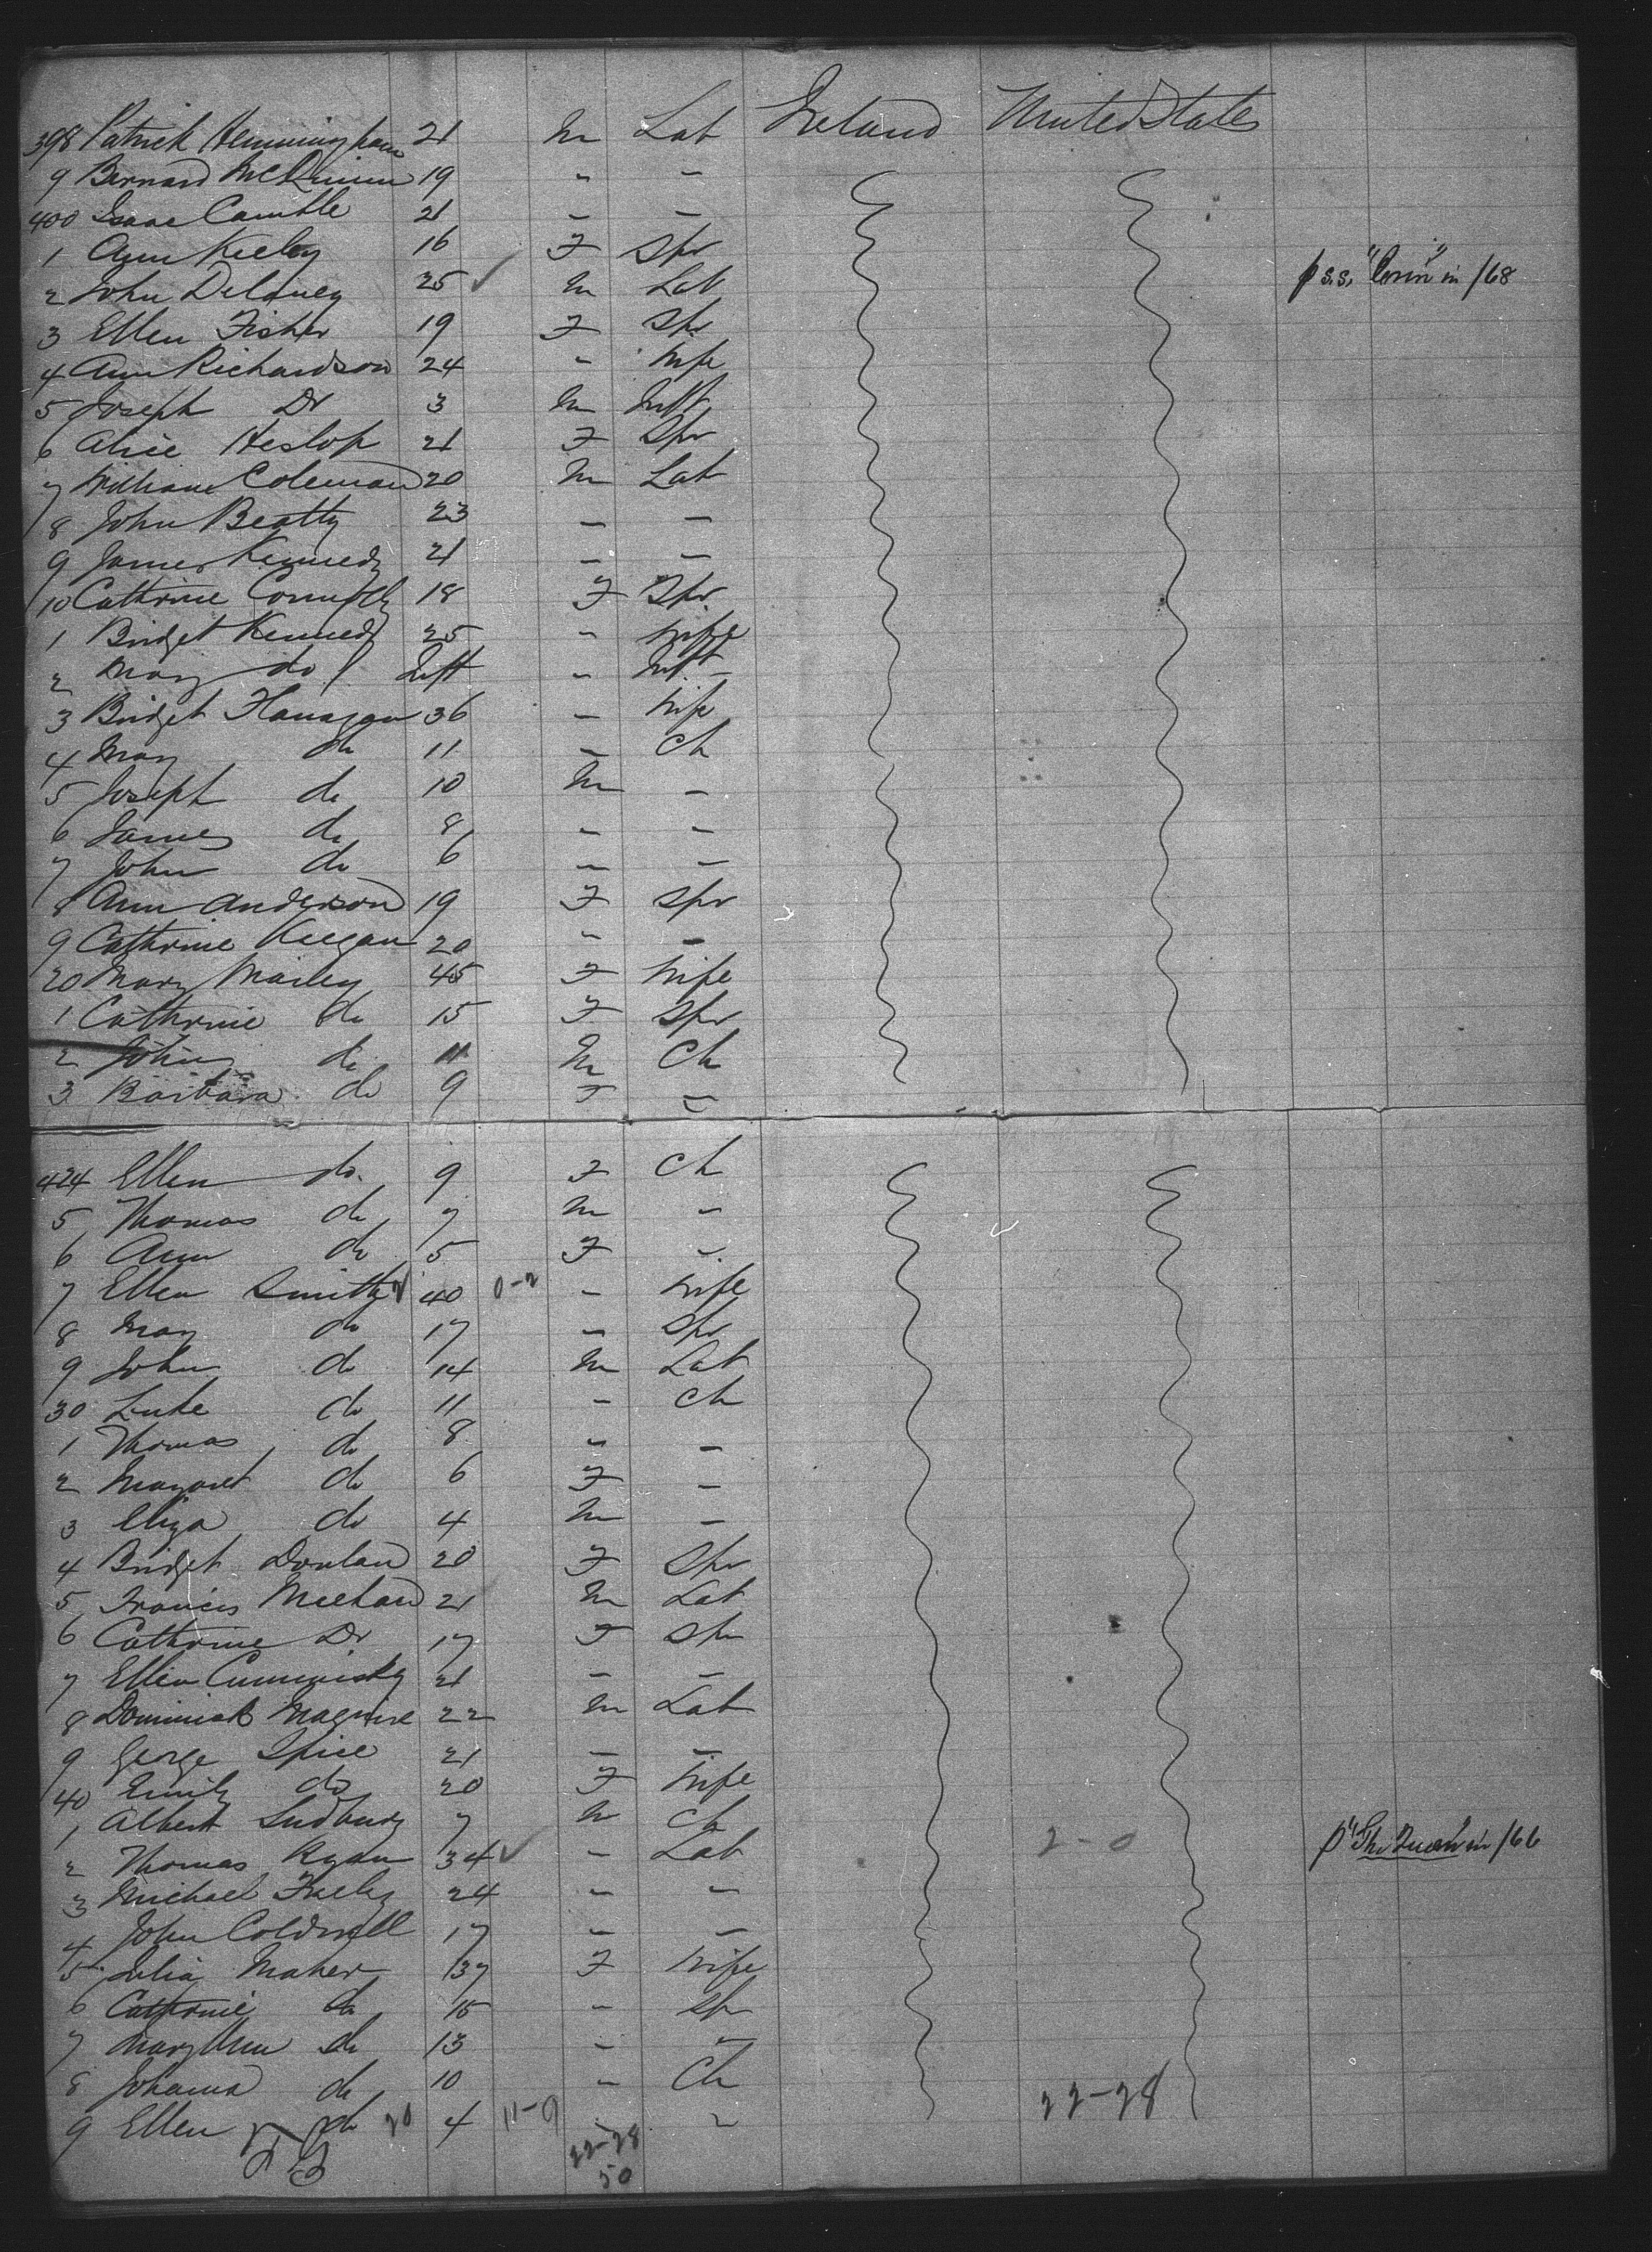 398 Patrick Hemmingham 21 m Lab Ireland United States
9 Bernard McQuinn 19 " –
400 Isaac Camble 21 – –
1 Ann Keeley 16 F Spr
2 John Delaney 25 ✓ m Lab p s.s. "Corin" in /68
3 Ellen Fisher 19 F Spr
4 Ann Richardson 24 – Wife
5 Joseph Do 3 m Inft
6 Alice Heslop 21 F Spr
7 William Coleman 20 m Lab
8 John Beatty 23 – –
9 James Kennedy 21 – –
10 Cathrine Connolly 18 F Spr
1 Bridget Kennedy 25 – Wife
2 Mary do Inft – Inft
3 Bridget Flanagan 36 – Wife
4 Mary do 11 – Ch
5 Joseph do 10 m –
6 James do 8 – –
7 John do 6 – –
8 Ann Anderson 19 F Spr
9 Cathrine Keegan 20 – –
20 Mary Mailey 45 F Wife
1 Cathrine do 15 F Spr
2 John do 11 m Ch
3 Barbara do 9 F –
424 Ellen do 9 F Ch
5 Thomas do 7 m –
6 Ann do 5 F –
7 Ellen Smith 40 0-2 – Wife
8 Mary do 17 – Spr
9 John do 14 m Lab
30 Luke do 11 – Ch
1 Thomas do 8 – –
2 Margaret do 6 F –
3 Eliza do 4 m –
4 Bridget Donlan 20 F Spr
5 Francis Meehan 21 m Lab
6 Cathrine Do 17 F Spr
7 Ellen Cummisky 21 – –
8 Dominick Maguire 22 m Lab
9 George Spice 21 – –
40 Emily do 20 F Wife
1 Albert Sudbury 7 m Ch
2 Thomas Ryan 34 ✓ – Lab 2-0 p "The Queen" in /66
3 Michael 24 – –
4 John Coldwell 17 – –
5 Julia Maher 37 F Wife
6 Cathrine do 15 – Spr
7 Mary Ann do 13 – –
8 Johanna do 10 – Ch 22-28
9 Ellen do 20 4 11-9 – –
52 22-28
50